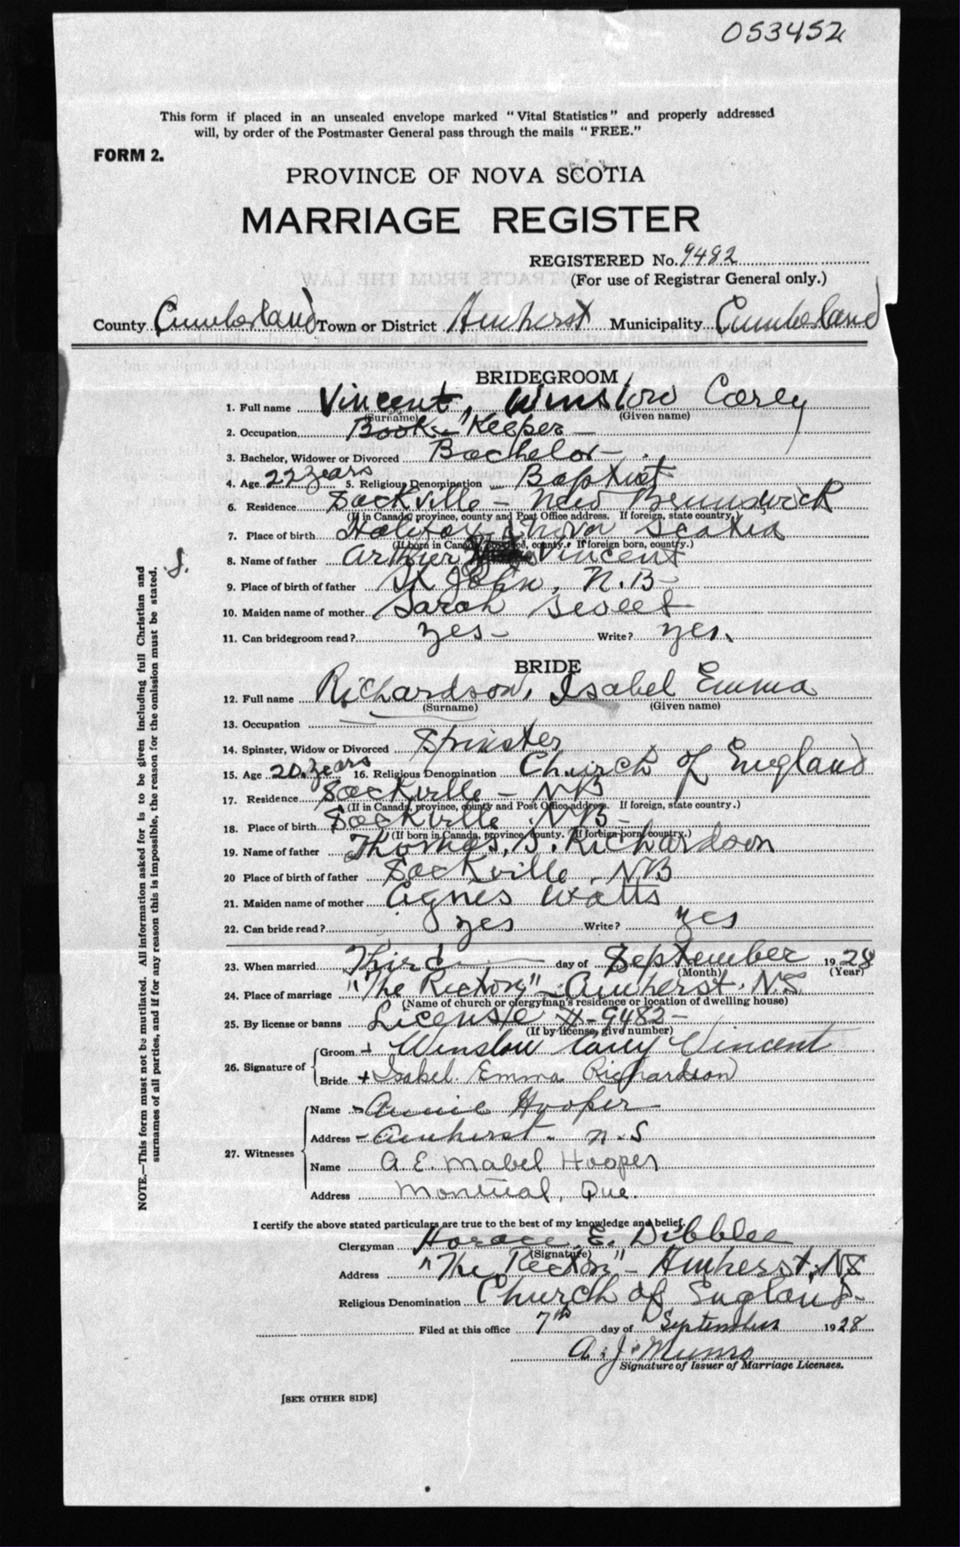 053452
This form if placed in an unsealed envelope marked "Vital Statistics" and properly addressed
will, by order of the Postmaster General pass through the mails "FREE."
FORM 2.
PROVINCE OF NOVA SCOTIA
MARRIAGE REGISTER
REGISTERED No. 9482
(For use of Registrar General only.)
County Cumberland Town or District Amherst Municipality Cumberland
BRIDEGROOM
1. Full name Vincent, Winslow Carey
(Surname) (Given name)
2. Occupation Book-Keeper
3. Bachelor, Widower or Divorced Bachelor
4. Age 22 years 5. Religious Denomination Baptist
6. Residence Sackville - New Brunswick
(If in Canada, province, county and Post Office address. If foreign, state country.)
7. Place of birth Nova Scotia
(If born in Canada, province, county. If foreign born, country.)
8. Name of father Arthur Vincent
9. Place of birth of father St John, N.B.
10. Maiden name of mother Sarah Sweet
11. Can bridegroom read? yes Write? yes.
8.
BRIDE
12. Full name Richardson, Isabel Emma
(Surname) (Given name)
13. Occupation
14. Spinster, Widow or Divorced Spinster
15. Age 20 years 16. Religious Denomination Church of England
17. Residence Sackville - NB
(If in Canada, province, county and Post Office address. If foreign, state country.)
18. Place of birth Sackville, NB
(If born in Canada, province, county. If foreign born, country.)
19. Name of father Thomas, S. Richardson
20 Place of birth of father Sackville, NB
21. Maiden name of mother Agnes Watts
22. Can bride read? yes Write? yes
23. When married Third day of September 1928
(Month) (Year)
24. Place of marriage "The Rectory" - Amherst, NS
(Name of church or clergyman's residence or location of dwelling house)
25. By license or banns License #-9482-
(If by license, give number)
26. Signature of
Groom + Winslow Carey Vincent
Bride + Isabel Emma Richardson
27. Witnesses
Name Annie Hooper
Address Amherst. N.S
Name A. E. Mabel Hooper
Address Montreal, Que.
I certify the above stated particulars are true to the best of my knowledge and belief.
Clergyman Horace E. Dibblee
(Signature)
Address "The Rectory" - Amherst, NS
Religious Denomination Church of England
Filed at this office 7th day of September 1928
A. J. Munro
Signature of Issuer of Marriage Licenses.
[SEE OTHER SIDE]
NOTE.—This form must not be mutilated. All information asked for is to be given including full Christian and
surnames of all parties, and if for any reason this is impossible, the reason for the omission must be stated.